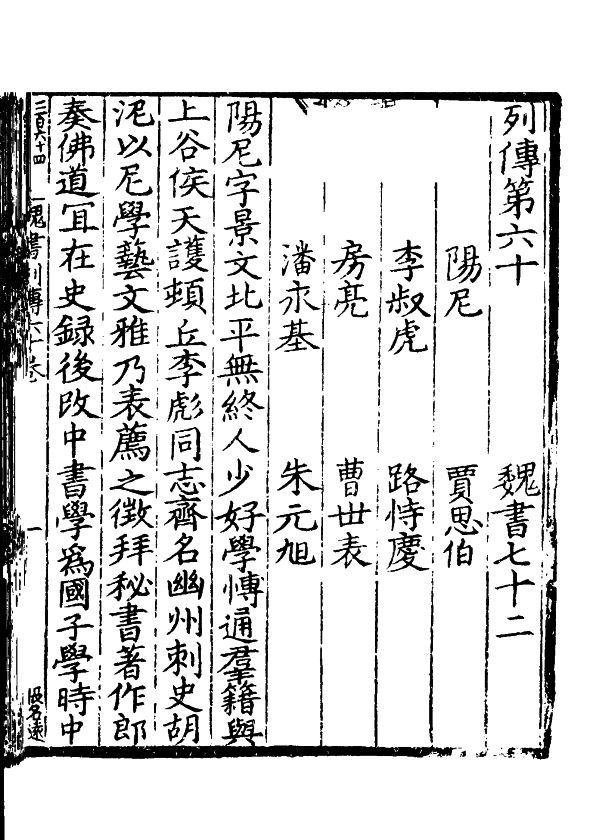 列傳第六十 魏書七十二
陽尼 賈思伯
李叔虎 路恃慶
房亮 曹世表
潘永基 朱元旭
陽尼字景文北平無終人少好學博通羣籍與
上谷侯天護頓丘李彪同志齊名幽州刺史胡
泥以尼學藝文雅乃表薦之徵拜秘書著作郎
奏佛道冝在史録後改中書學爲國子學時中
三百六十四 魏書列傳六十卷 一